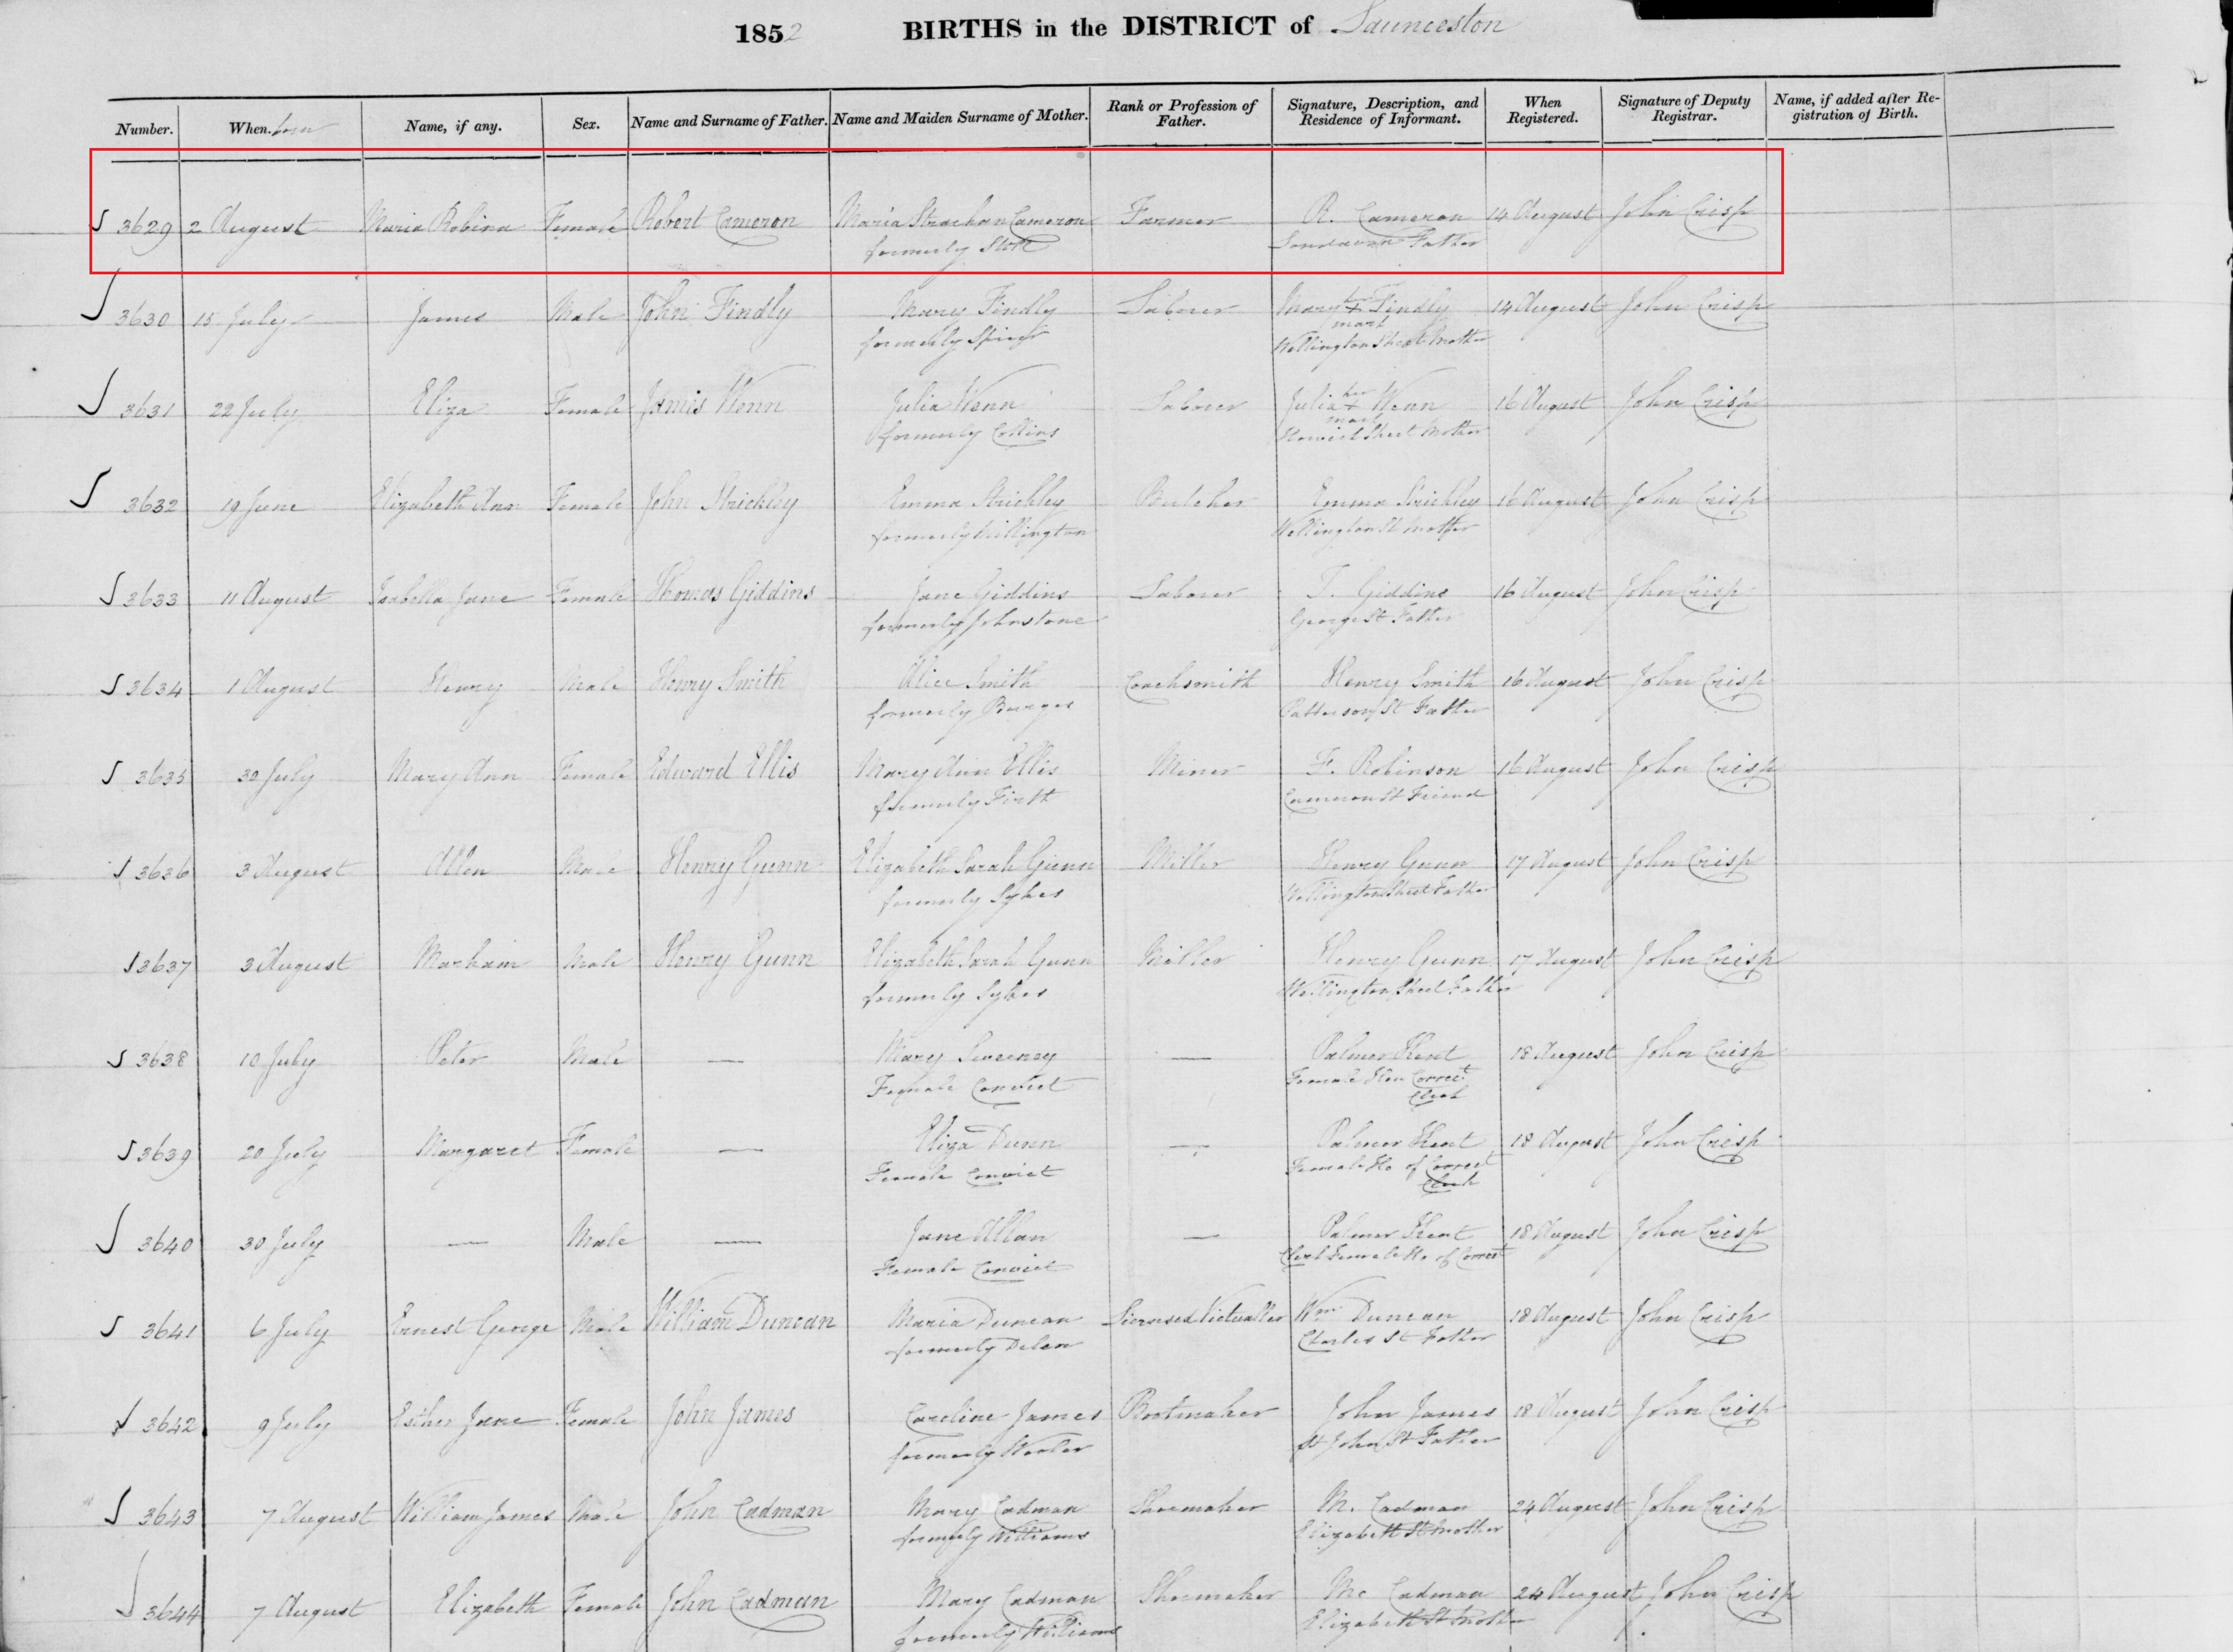 1852 BIRTHS in the DISTRICT of Launceston
Number. When born Name, if any. Sex. Name and Surname of Father. Name and Maiden Surname of Mother. Rank or Profession of Father. Signature, Description, and Residence of Informant. When Registered. Signature of Deputy Registrar. Name, if added after Registration of Birth.
3629 2 August Maria Robina Female Robert Cameron Maria Strachan Cameron Farmer R. Cameron 14 August John Crisp
formerly Father
3630 15 July James Male John Findly Mary Findly Laborer Mary her x Findly 14 August John Crisp
mark
formerly Wellington Street Mother
3631 22 July Eliza Female James Wenn Julia Wenn Laborer Julia her x Wenn 16 August John Crisp
mark
formerly Collins Street Mother
3632 19 June Elizabeth Ann Female John Strickley Emma Strickley Butcher Emma Strickley 16 August John Crisp
formerly Millington Wellington St Mother
3633 11 August Isabella Jane Female Thomas Giddins Jane Giddins Laborer T. Giddins 16 August John Crisp
formerly Johnstone George St Father
3634 1 August Henry Male Henry Smith Alice Smith Coachsmith Henry Smith 16 August John Crisp
formerly Burges Patterson St Father
3635 30 July Mary Ann Female Edward Ellis Mary Ann Ellis Miner F. Robinson 16 August John Crisp
formerly Firth Cameron St Friend
3636 3 August Allen Male Henry Gunn Elizabeth Sarah Gunn Miller Henry Gunn 17 August John Crisp
formerly Sykes Wellington Street Father
3637 3 August Markham Male Henry Gunn Elizabeth Sarah Gunn Miller Henry Gunn 17 August John Crisp
formerly Sykes Wellington Street Father
3638 10 July Peter Male — Mary Sweeney — Palmer Kent 18 August John Crisp
Female Convict Female Hou Correct
Clerk
3639 20 July Margaret Female — Eliza Dunn — Palmer Kent 18 August John Crisp
Female Convict Female Ho of Correct
Clerk
3640 30 July — Male — Jane Allan — Palmer Kent 18 August John Crisp
Female Convict Clerk Female Ho of Correct
3641 6 July Ernest George Male William Duncan Maria Duncan Licensed Victualler Wm Duncan 18 August John Crisp
formerly Charles St Father
3642 9 July Esther Jane Female John James Caroline James Bootmaker John James 18 August John Crisp
formerly St John St Father
3643 7 August William James Male John Cadman Mary Cadman Shoemaker M. Cadman 24 August John Crisp
formerly Williams Elizabeth St Mother
3644 7 August Elizabeth Female John Cadman Mary Cadman Shoemaker Mc Cadman 24 August John Crisp
formerly Williams Elizabeth St Moth